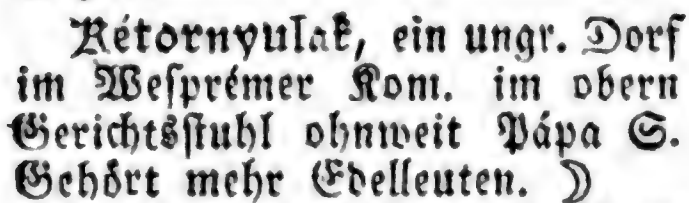 Kétornyulak, ein ungr. Dorf
im Weſprémer Kom. im obern
Gerichtsſtuhl ohnweit Pápa S.
Gehört mehr Edelleuten. ☽